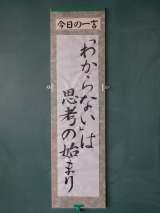 今日の一言
「わからない」は
思考の始まり